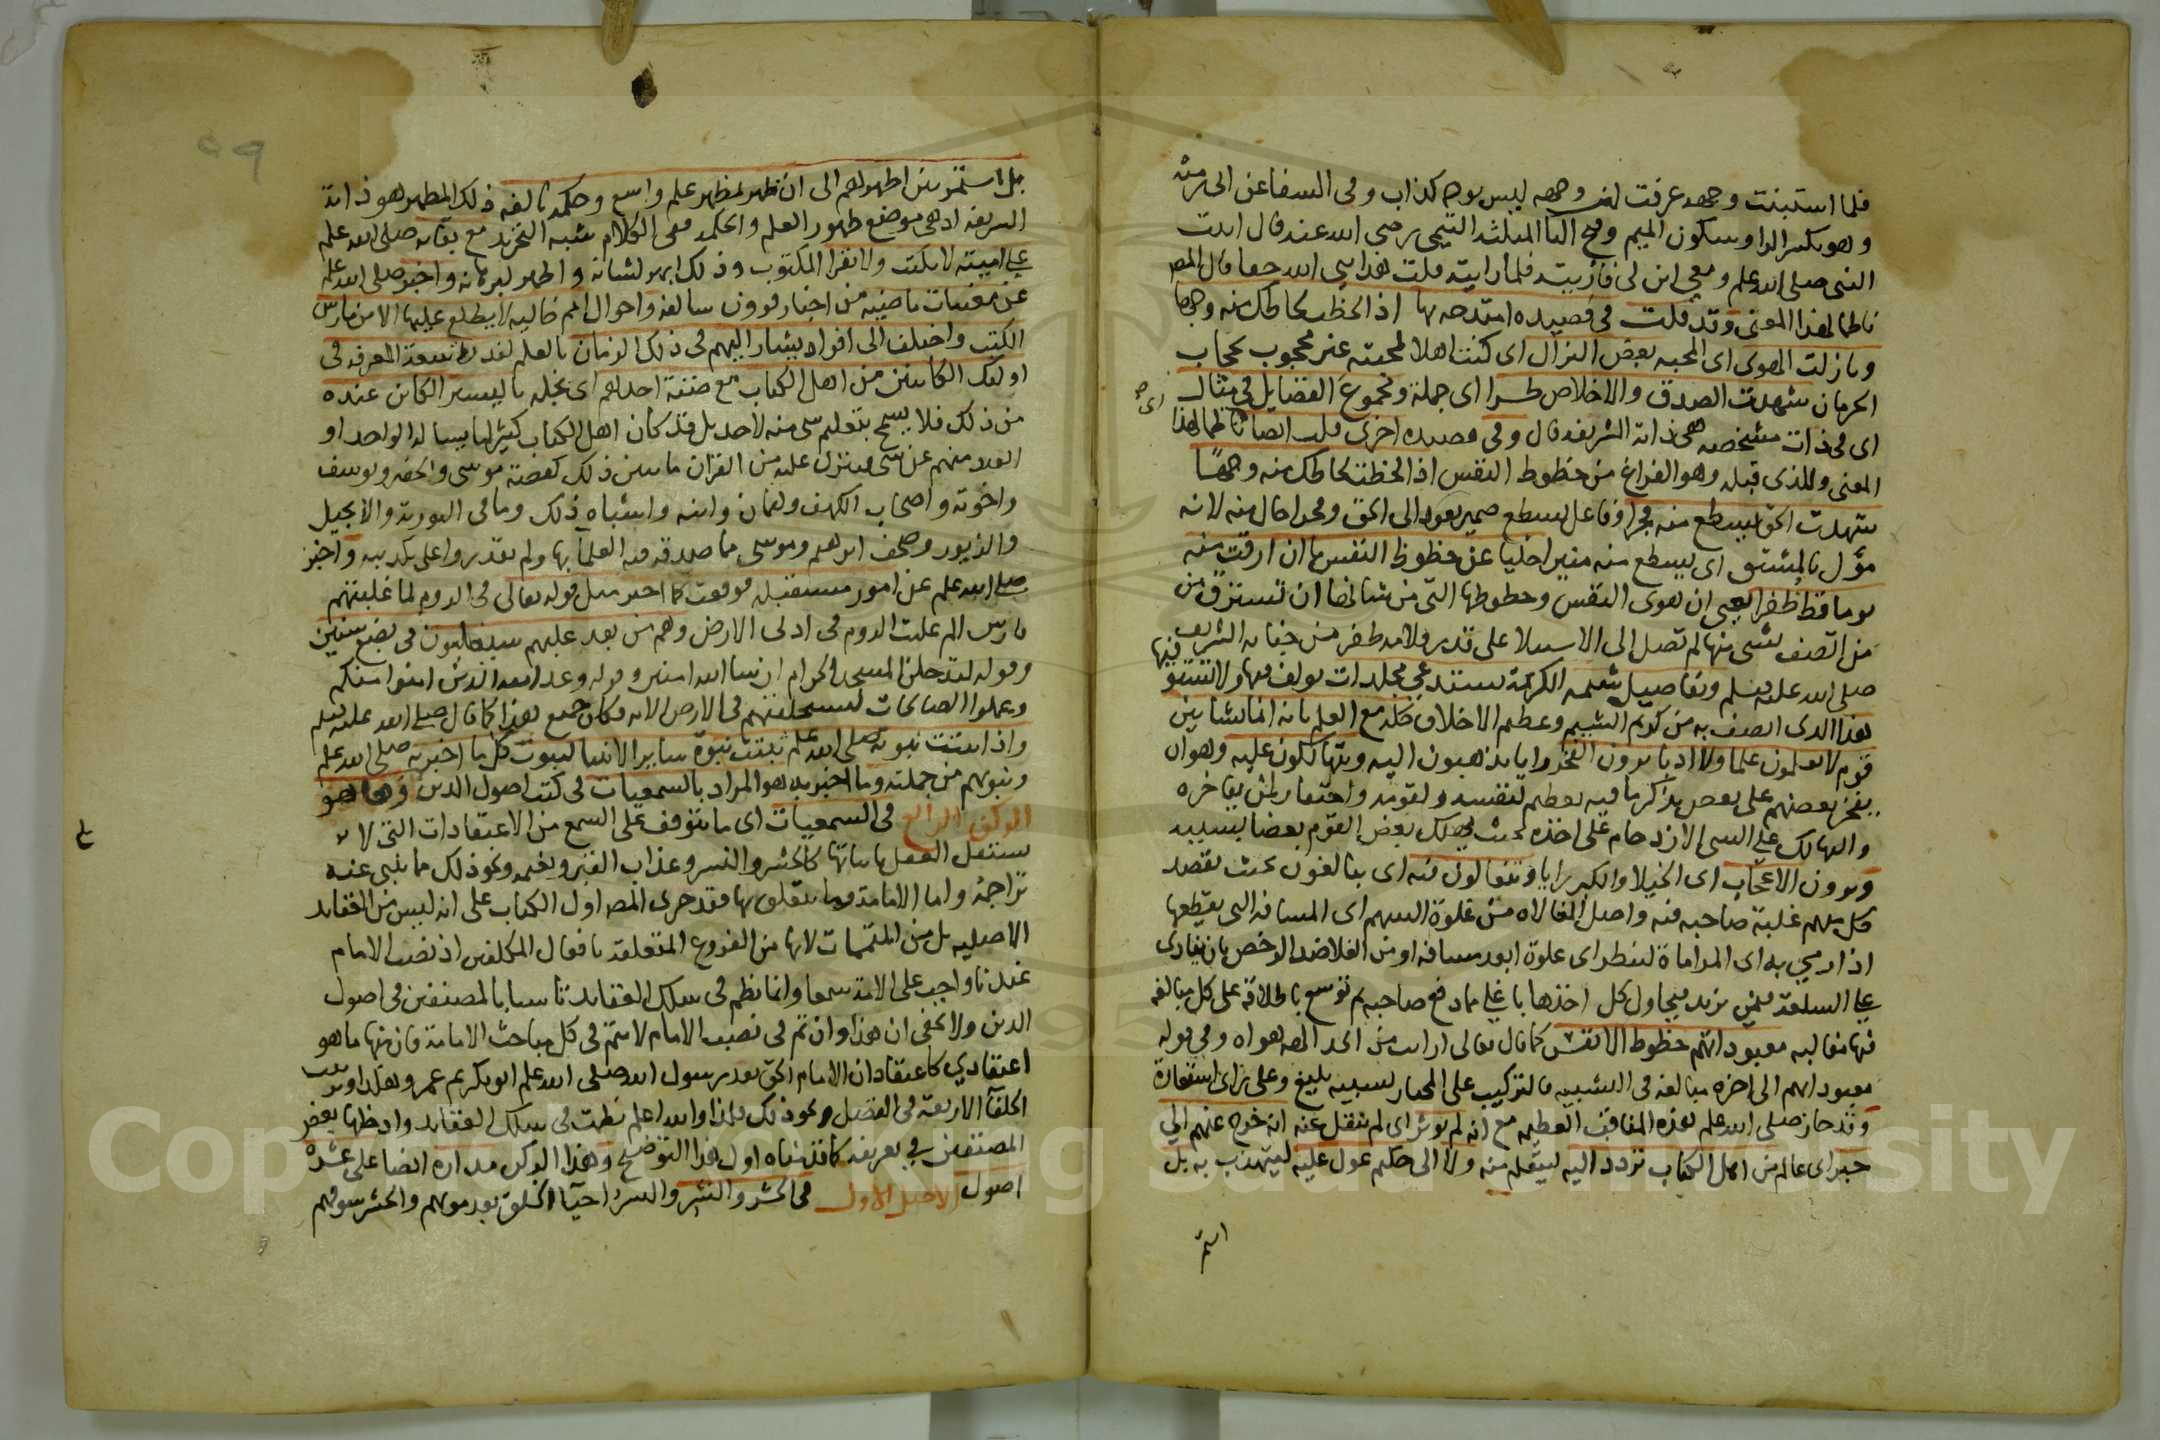 فلما استبنت وجهه عرفت ان وجهه ليس بوجه كذاب وفى الشفا عن ابى رمثة
وهو بكسر الرا وسكون الميم وفتح الثا المثلثة التيمى رضى الله عنه قال اتيت
النبى صلى الله عليه وسلم ومعى ابن لى فأريته فلما رايته قلت هذا نبى الله حقا قال المص
ناظما لهذا المعنى وقد قلت فى قصيده امتدحه بها اذا لحظت لحاظك منه وجها
ونازلت الهوى اى المحبه بعض النزال اى كنت اهلا لمحبته غير محجوب بحجاب
الحرمان شهدت الصدق والاخلاص طرا اى جملة ومجموع الفضايل فى مثال
اى فى ذات مشخصه هى ذاته الشريفه قال وفى قصيده اخرى قلت ايضا ناظما لهذا
المعنى وللذى قبله وهو الفراغ من حظوظ النفس اذا لحظت لحاظك منه وجها
شهدت الحق يسطع منه فجرا وفاعل يسطع ضمير يعود الى الحق وفجرا حال منه لانه
مؤل بالمشتق اى يسطع منه منيرا خليا عن حظوظ النفس ما ان ارقت منه
يوما قط ظفرا يعنى ان هوى النفس وحظوظها التى من شانها ان تسترق من
من اتصف بشى منها لم تصل الى الاستيلا على قدر قلامة ظفر من جنابه الشريف
صلى الله عليه وسلم وتفاصيل شيمه الكريمة تستدعى مجلدات تولف فيها ولا تستوفيها
هذا الذى اتصف به من كرم الشيم وعظم الاخلاق كله مع العلم بانه انما نشا بين
قوم لا يعلمون علما ولا ادبا يرون الفخر رايا يذهبون اليه ويتهالكون عليه وهو ان
يفخر بعضهم على بعض بذكر ما فيه تعظيم لنفسه ولقومه واحتقار لمن يفاخره
والتهالك على الشى الازدحام على اخذه بحيث يهلك بعض القوم بعضا بسببه
ويرون الاعجاب اى الخيلا والكبر رايا ويتغالون فيه اى يبالغون بحيث يقصد
كل منهم غلبة صاحبه فيه واصل المغالاه من غلوة السهم اى المسافه التى يقطعها
اذا رمى به اى المراماة لينظر اى غلوة ابعد مسافه او من الغلا ضد الرخص بان ينادى
على السلعة فيمن يزيد فيحاول كل اخذها باغلى مما دفع صاحبه ثم توسع باطلاقه على كل مبالغه
فيها مغالبه معبوداتهم حظوظ الانفس كما قال تعالى ارايت من اتخذ الهه هواه وفى قوله
معبوداتهم الى اخره مبالغه فى التشبيه فالتركيب على المختار تشبيه بليغ وعلى راى استعارة
وقد حاز صلى الله عليه وسلم هذه المناقب العظيمه مع انه لم يوثر اى لم ينقل عنه انه خرج عنهم الى
حبر اى عالم من اهل الكتاب تردد اليه ليتعلم منه ولا الى حكيم عول عليه ليتهذب به بل
استمر
بل استمر بين اظهرهم الى ان ظهر لمظهر علم واسع وحكمه بالغه ذلك المظهر هو ذاته
الشريفه اذ هى موضع ظهور العلم والحكمه ففى الكلام شبه التجريد مع بقائه صلى الله عليه وسلم
على اميته لا يكتب ولا يقرا المكتوب وذلك ابهر لشانه واظهر لبرهانه واخبر صلى الله عليه وسلم
عن مغيبات ماضيه من اخبار قرون سالفه واحوال امم خاليه لا يطلع عليها الا من مارس
الكتب واختلف الى افراد يشار اليهم فى ذلك الزمان بالعلم لندرة سعة المعرفه فى
اوليك الكائنين من اهل الكتاب مع ضنة احدهم اى بخله باليسير الكائن عنده
من ذلك فلا يسمح بتعليم شى منه لاحد بل قد كان اهل الكتاب كثيرا ما يساله الواحد او
العدد منهم عن شى فينزل عليه من القران ما يبين ذلك كقصة موسى والخضر ويوسف
واخوته واصحاب الكهف ولقمان وابنه واشباه ذلك وما فى التوريه والانجيل
والزبور وصحف ابرهيم وموسى مما صدقه فيه العلما بها ولم يقدروا على تكذيبه واخبر
صلى الله عليه وسلم عن امور مستقبله فوقعت كما اخبر مثل قوله تعالى فى الروم لما غلبتهم
فارس الم غلبت الروم فى ادنى الارض وهم من بعد غلبهم سيغلبون فى بضع سنين
وقوله لتدخلن المسجد الحرام ان شا الله امنين وقوله وعد الله الذين امنوا منكم
وعملوا الصالحات ليستخلفنهم فى الارض الايه فكان جميع هذا كما قال صلى الله عليه وسلم
واذا ثبتت نبوته صلى الله عليه وسلم ثبتت نبوة ساير الانبيا لثبوت كل ما اخبر به صلى الله عليه وسلم
ونبوتهم من جملته وما اخبر به هو المراد بالسمعيات فى كتب اصول الدين وها هو
الركن الرابع فى السمعيات اى ما يتوقف على السمع من الاعتقادات التى لا
يستقل العقل باثباتها كالحشر والنشر وعذاب القبر ونعيمه ونحو ذلك مما ينبى عنه
تراجمه واما الامامة وما يتعلق بها فقد جرى المص اول الكتاب على انه ليس من العقايد
الاصليه بل من المتممات لانها من الفروع المتعلقة بافعال المكلفين اذ نصب الامام
عندنا واجب على الامة سمعا وانما نظم فى سلك العقايد تاسيا بالمصنفين فى اصول
الدين ولا يخفى ان هذا وان تم فى نصب الامام لا يتم فى كل مباحث الامامة فان منها ما هو
اعتقادى كاعتقاد ان الامام الحق بعد رسول الله صلى الله عليه وسلم ابو بكر ثم عمر وهكذا وترتيب
الخلفا الاربعة فى الفضل ونحو ذلك فلهذا والله اعلم نظمت فى سلك العقايد وادخلها بعض
المصنفين فى تعريفه كما قدمناه اول هذا التوضيح وهذا الركن مداره ايضا على عشرة
اصول الاصل الاول فى الحشر والنشر والنشر احيآ الخلق بعد موتهم والحشر سوقهم